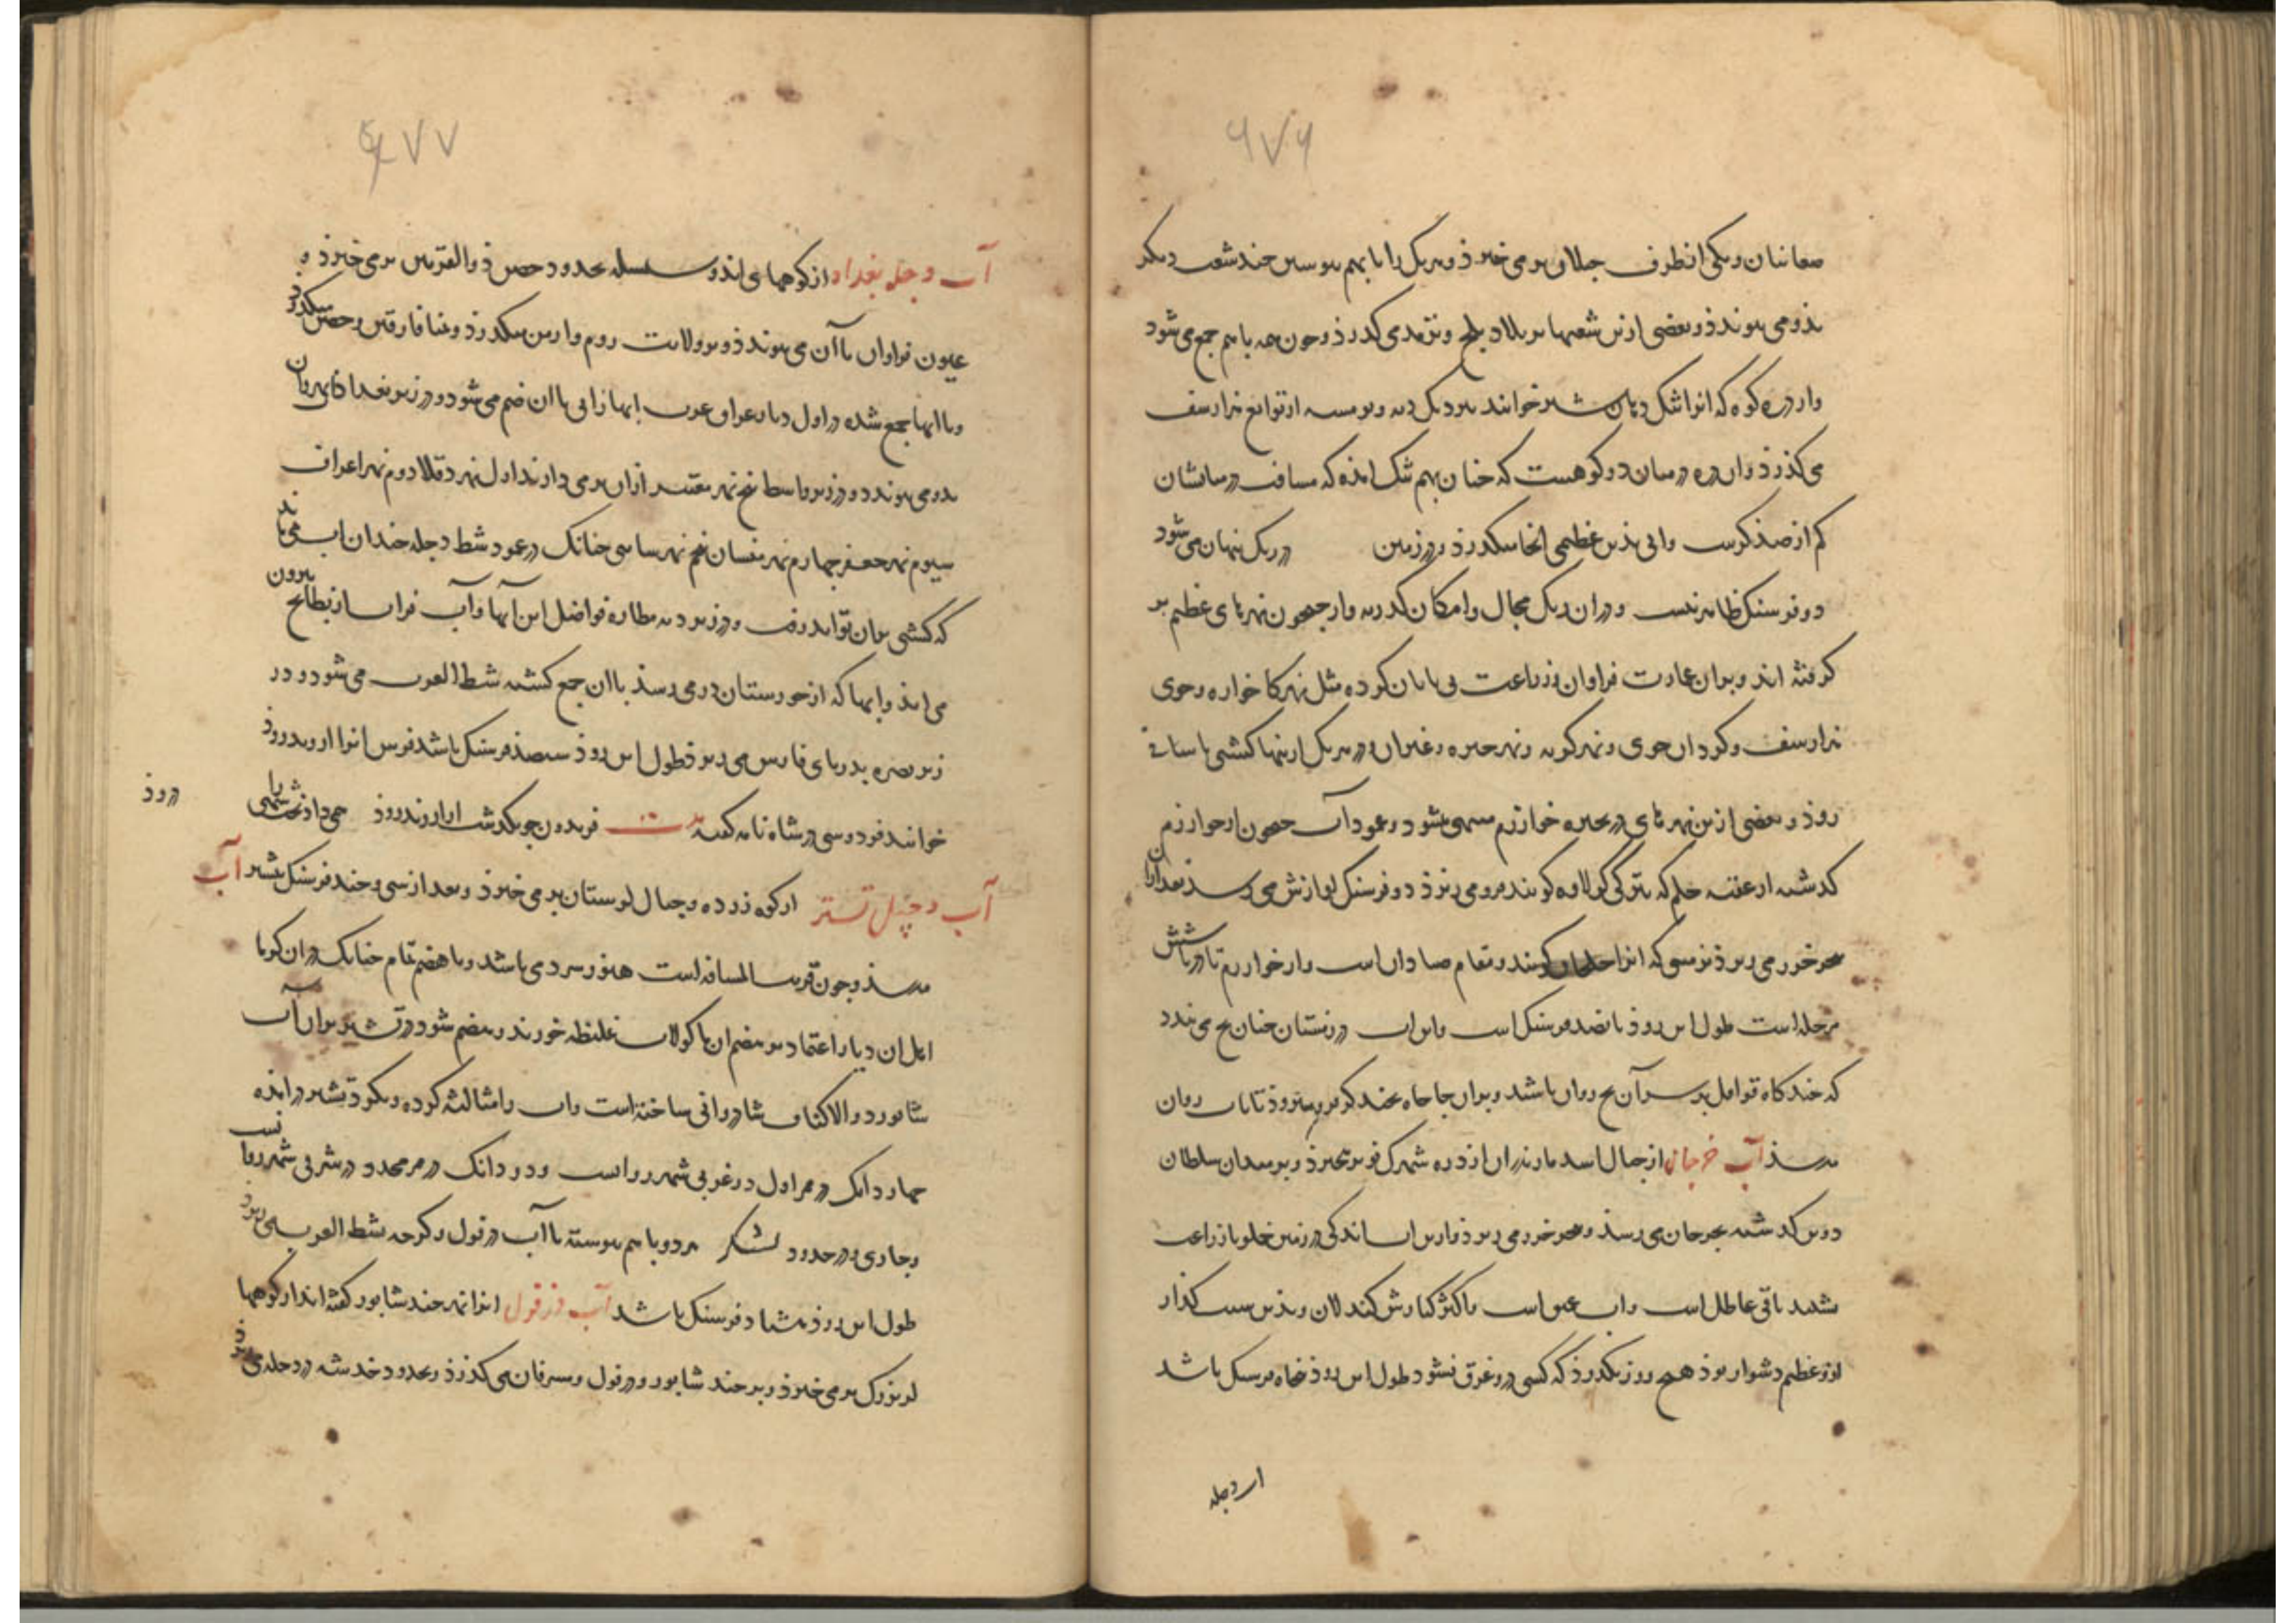 ۶۷۶
صغانیان و یکی از طرف جیلان برمی خیزد و هر یک را با بهم پیوستن چند شعب دیگر
بدو می پیوندد و بعضی ازین شعبها بر بلاد بلخ و ترمد می گذرد و چون همه با هم جمع می شود
و از دره کوه که انرا تنک دهان شیر خوانند نزدیک دیه بوسه از توابع هزارسف
می گذرد و ان دره در میان دو کوهست که چنان بهم تنک امده که مسافت در میانشان
کم از صد گزست و ابی بدین عظیمی انجا میگذرد و در زمین در ریک پنهان می شود
دو فرسنک ظاهر نیست و در ان ریک مجال و امکان گذر نه و از جیحون نهرهای عظیم بر
گرفته اند و بر ان عمارت فراوان و زراعت بی پایان کرده مثل نهر کاخواره و جوی
هزارسف و کردان جوی و نهر کربه و نهر خیره و غیران و در هر یک ازینها کشتی باسانی
رود و بعضی ازین نهرهای در بحیره خوارزم منتهی شود و عمود آب جیحون از خوارزم
گذشته از عقبه حلم که بترکی کورلاوه گویند فرو می ریزد دو فرسنک اوازش می رسد بعد ازان
ببحر خزر می ریزد بزمینی که انرا خلخان گویند و مقام صیادان است و از خوارزم تا دریا شش
مرحله است طول این رود پانصد فرسنک است و این اب در زمستان چنان یخ می بندد
که چند گاه قوافل بر سر آن یخ روان باشد و بر ان جا چاه بچند گز فرو میبرند تا باب روان
میرسد آب جرجان از جبال اسد مازندران از دره شهرک نو برمیخیزد و بر میدان سلطان
دوین گذشته بجرجان می رسد و ببحر خزر می ریزد و ازین اب اندکی در زمین خلوبا زراعت
نشیند باقی عاطل است و اب عمیق است با کثر کنارش کند لان و بدین سبب گذار
ازو عظیم دشوار بود هیچ روز نگذرد که کسی درو غرق نشود طول این رود پنجاه فرسنک باشد
اب دجله
۶۷۷
آب دجله بغداد از کوههای اند و سلسله بحدود حصن ذوالقرنین برمی خیزد و
عیون فراوان با آن می پیوندد و بر ولایت روم و ارمن میگذرد و بمیافارقین و حصن میگذرد
و با ابها جمع شده در اول دیار عراق عرب ابها زابی با ان ضم می شود و در زیر بغداد اب نهروان
بدو می پیوندد و در زیر واسط پنج نهر معتبر ازان برمی دارند اول نهر دقلا دوم نهر اعراف
سیوم نهر جعفر چهارم نهر میسان پنجم نهر ساسی چنانک در عمود شط دجله چندان اب نمی ماند
که کشتی بران تواند رفت و در زیر دیه مطاره فواضل این آبها و آب فرات از بطایح بیرون
می اید و ابها که از خورستان درمی رسد با ان جمع گشته شط العرب می شود و در
زیر بصره بدریای فارس می ریزد طول این رود سیصد فرسنک باشد فرس انرا اروند رود
خوانند فردوسی در شاه نامه گفته بیت فریدون چو بگذشت از اروند رود همی داد تخت شهی را درود
آب دجیل تستر از کوه زرده و جبال لرستان برمی خیزد و بعد از سی و چند فرسنک بتستر آب
میرسد و چون قریب المسافه است هنوز سردی باشد و با هضم تمام چنانک در ان گرما
اهل ان دیار اعتماد بر هضم ان ماکولات غلیظه خورند و هضم شود و در تستر بر ان آب
شابور ذوالاکتاف شادروانی ساخته است و اب را مثالثه کرده و بگرد تستر درامده
چهار دانک در ممر اول در غربی شهر رواست و دو دانک در ممر محدد در شرقی شهر روانست
و جاری و در حدود لشکر هر دو با هم پیوسته با آب دزفول و کرخه بشط العرب می ریزد
طول این رود هشتاد فرسنک باشد آب دزفول انرا نهر جندشابور گفته اند از کوهها
لر بزرک برمی خیزد و بر جند شابور و دزفول و مسرقان می گذرد و بحدود خدشه در دجله می ریزد